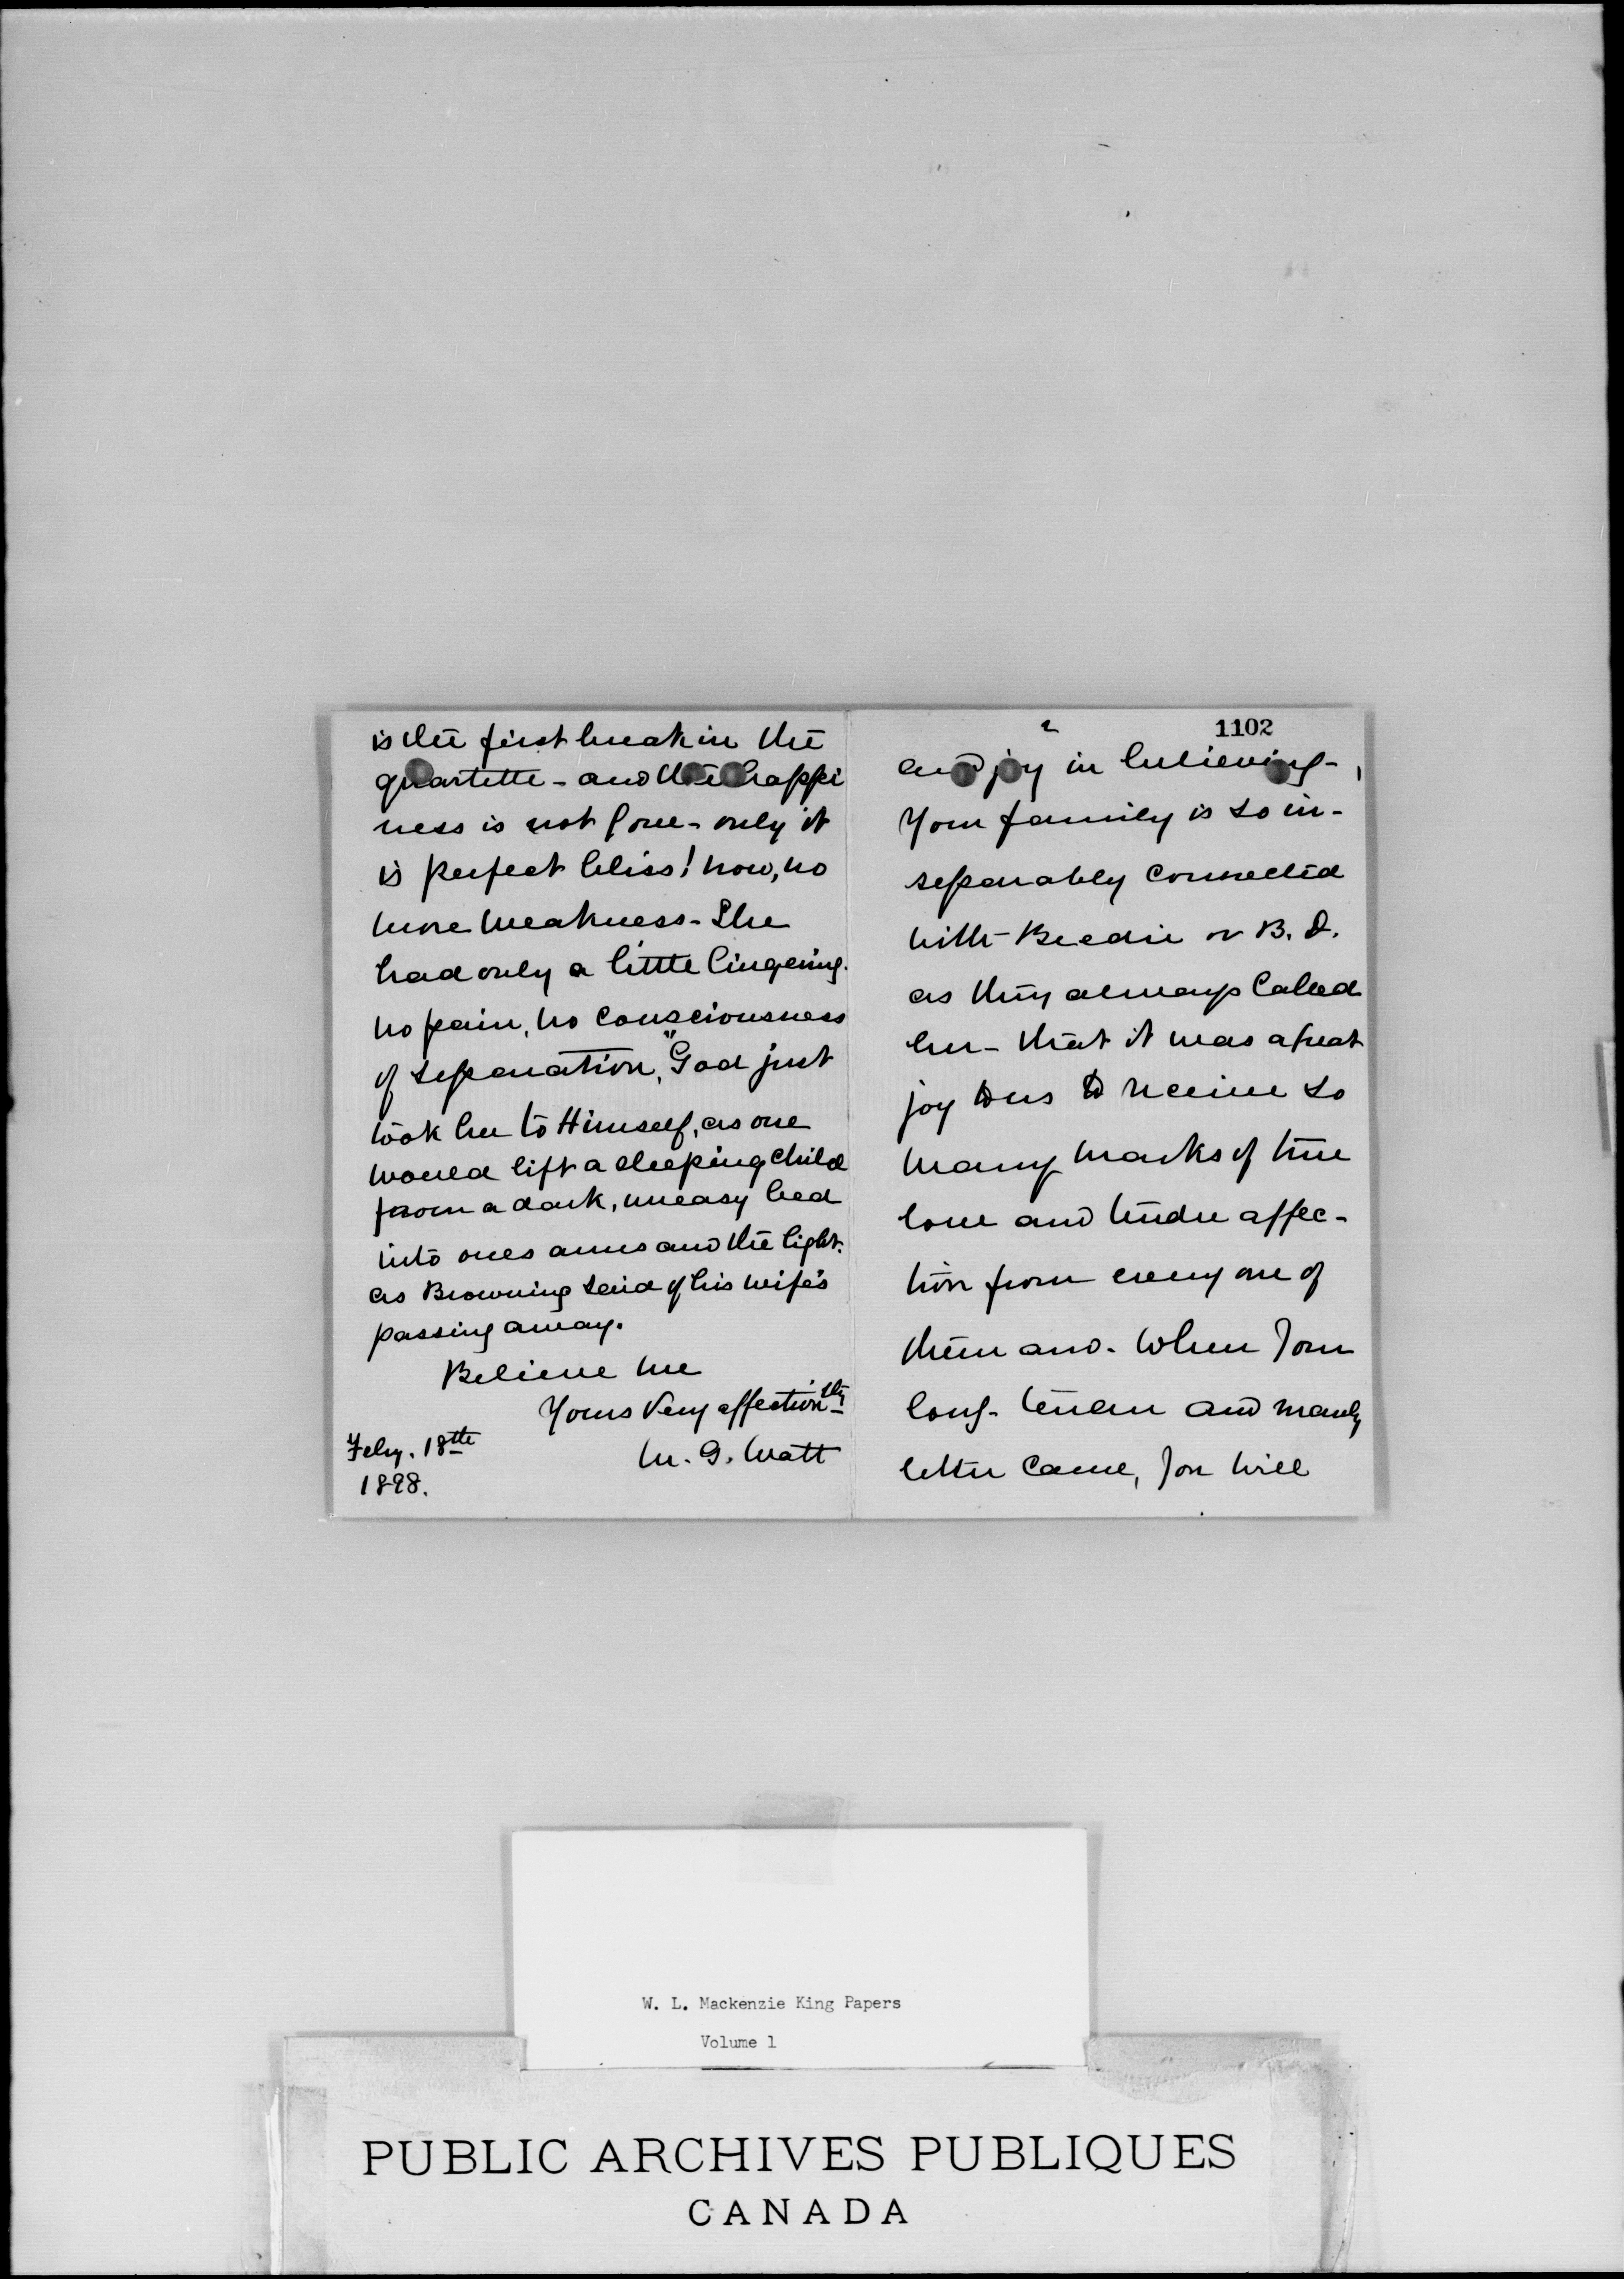 is the first break in the
quartette - and the happi
ness is not gone - only it
is perfect bliss! now, no
more weakness - She
had only a little lingering.
no pain, no consciousness
of separation, "God just
took her to Himself, as one
would lift a sleeping child
from a dark, uneasy bed
into ones arms and the light.
as Browning said of his wife's
passing away.
Believe me
Yours very affection'tly
M. G. Watt
Feby. 18th
1898.
2
1102
and joy in believing -
Your family is so in-
separably connected
with Beedie or B. D.
as they always called
her - that it was a great
joy to us to receive so
many marks of true
love and tender affec-
tion from every one of
them and. When your
long - tender and manly
letter came, you will
W. L. Mackenzie King Papers
Volume 1
PUBLIC ARCHIVES PUBLIQUES
CANADA